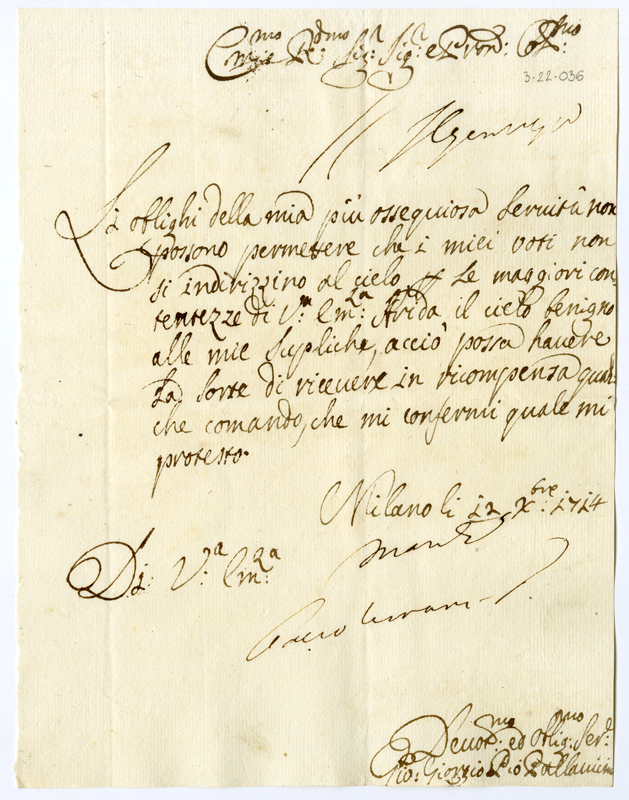 Em.mo R.mo Sig.r Sig.r e Pron: Col.mo
3-22-036
Li oblighi della mia più ossequiosa servitù non
possono permettere che i miei voti non
si indirizzino al cielo per le maggiori con
tentezze di V.ra Em.za Arida il cielo benigno
alle mie supliche, acciò possa havere
la sorte di ricevere in ricompensa qual
che comando, che mi confermi quale mi
protesto.
Milano li 12 Xbre: 1714
Di V.a Em.za
Devot.mo ed Oblig.mo Ser.
Gio: Giorgio Pio Pallavicino